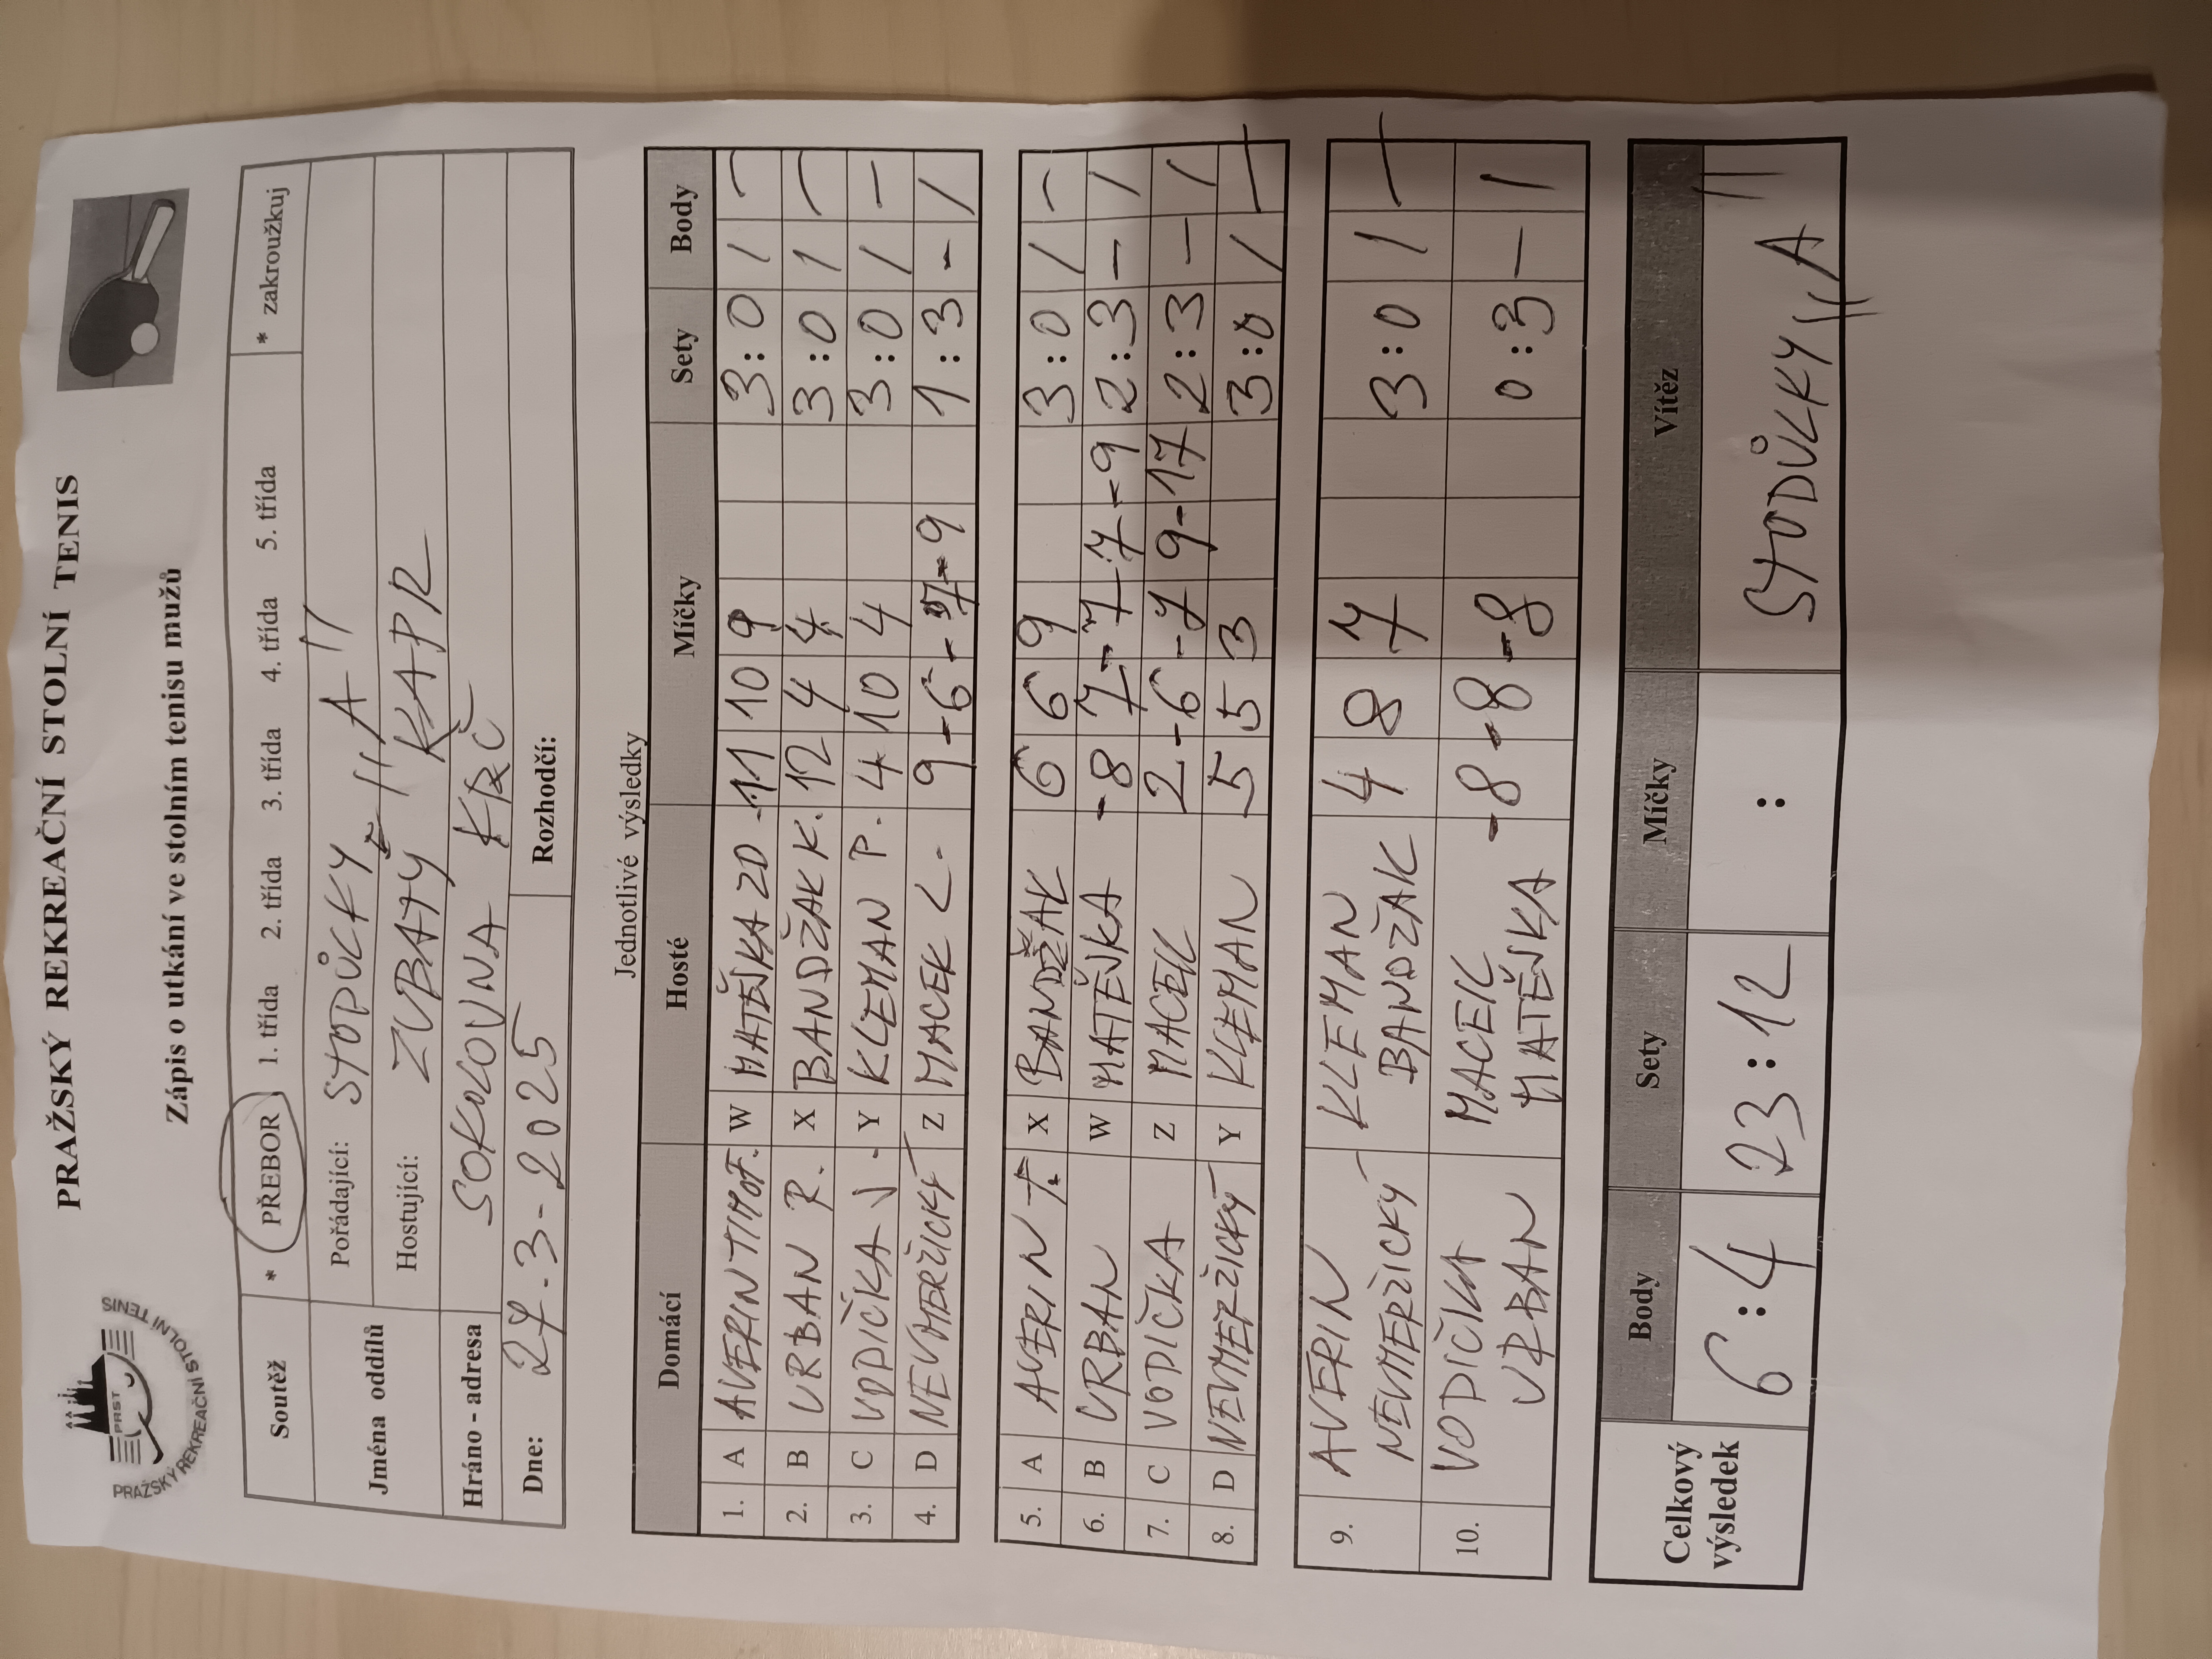 PRAŽSKÝ REKREAČNÍ STOLNÍ TENIS
PRST
PRAŽSKÝ REKREAČNÍ STOLNÍ TENIS
Zápis o utkání ve stolním tenisu mužů
Soutěž * PŘEBOR 1. třída 2. třída 3. třída 4. třída 5. třída * zakroužkuj
Jména oddílů Pořádající: STODŮLKY "A"
Hostující: ZUBATÝ KAPR
Hráno - adresa SOKOLOVNA KRČ
Dne: 27.3-2025 Rozhodčí:
Jednotlivé výsledky
Domácí Hosté Míčky Sety Body
1. A AVERIN TIMOF. W MATĚJKA ZD. 11 10 9 3:0 / –
2. B URBAN R. X BANDŽAK K. 12 4 4 3:0 1 –
3. C VODIČKA J. Y KLEMAN P. 4 10 4 3:0 / –
4. D NEVMERŽICKÝ Z MACEK L. 9 -6 -7 -9 1:3 – /
5. A AVERIN T. X BANDŽAK 6 6 9 3:0 / –
6. B URBAN W MATĚJKA -8 7 -7 7 -9 2:3 – /
7. C VODIČKA Z MACEK 2 -6 -7 9 -17 2:3 – /
8. D NEVMERŽICKÝ Y KLEMAN 5 5 3 3:0 / –
9. AVERIN KLEMAN 4 8 7 3:0 / –
NEVMERŽICKÝ BANDŽAK
10. VODIČKA MACEK -8 -8 -8 0:3 – /
URBAN MATĚJKA
Celkový výsledek Body Sety Míčky Vítěz
6:4 23:12 : STODŮLKY "A"